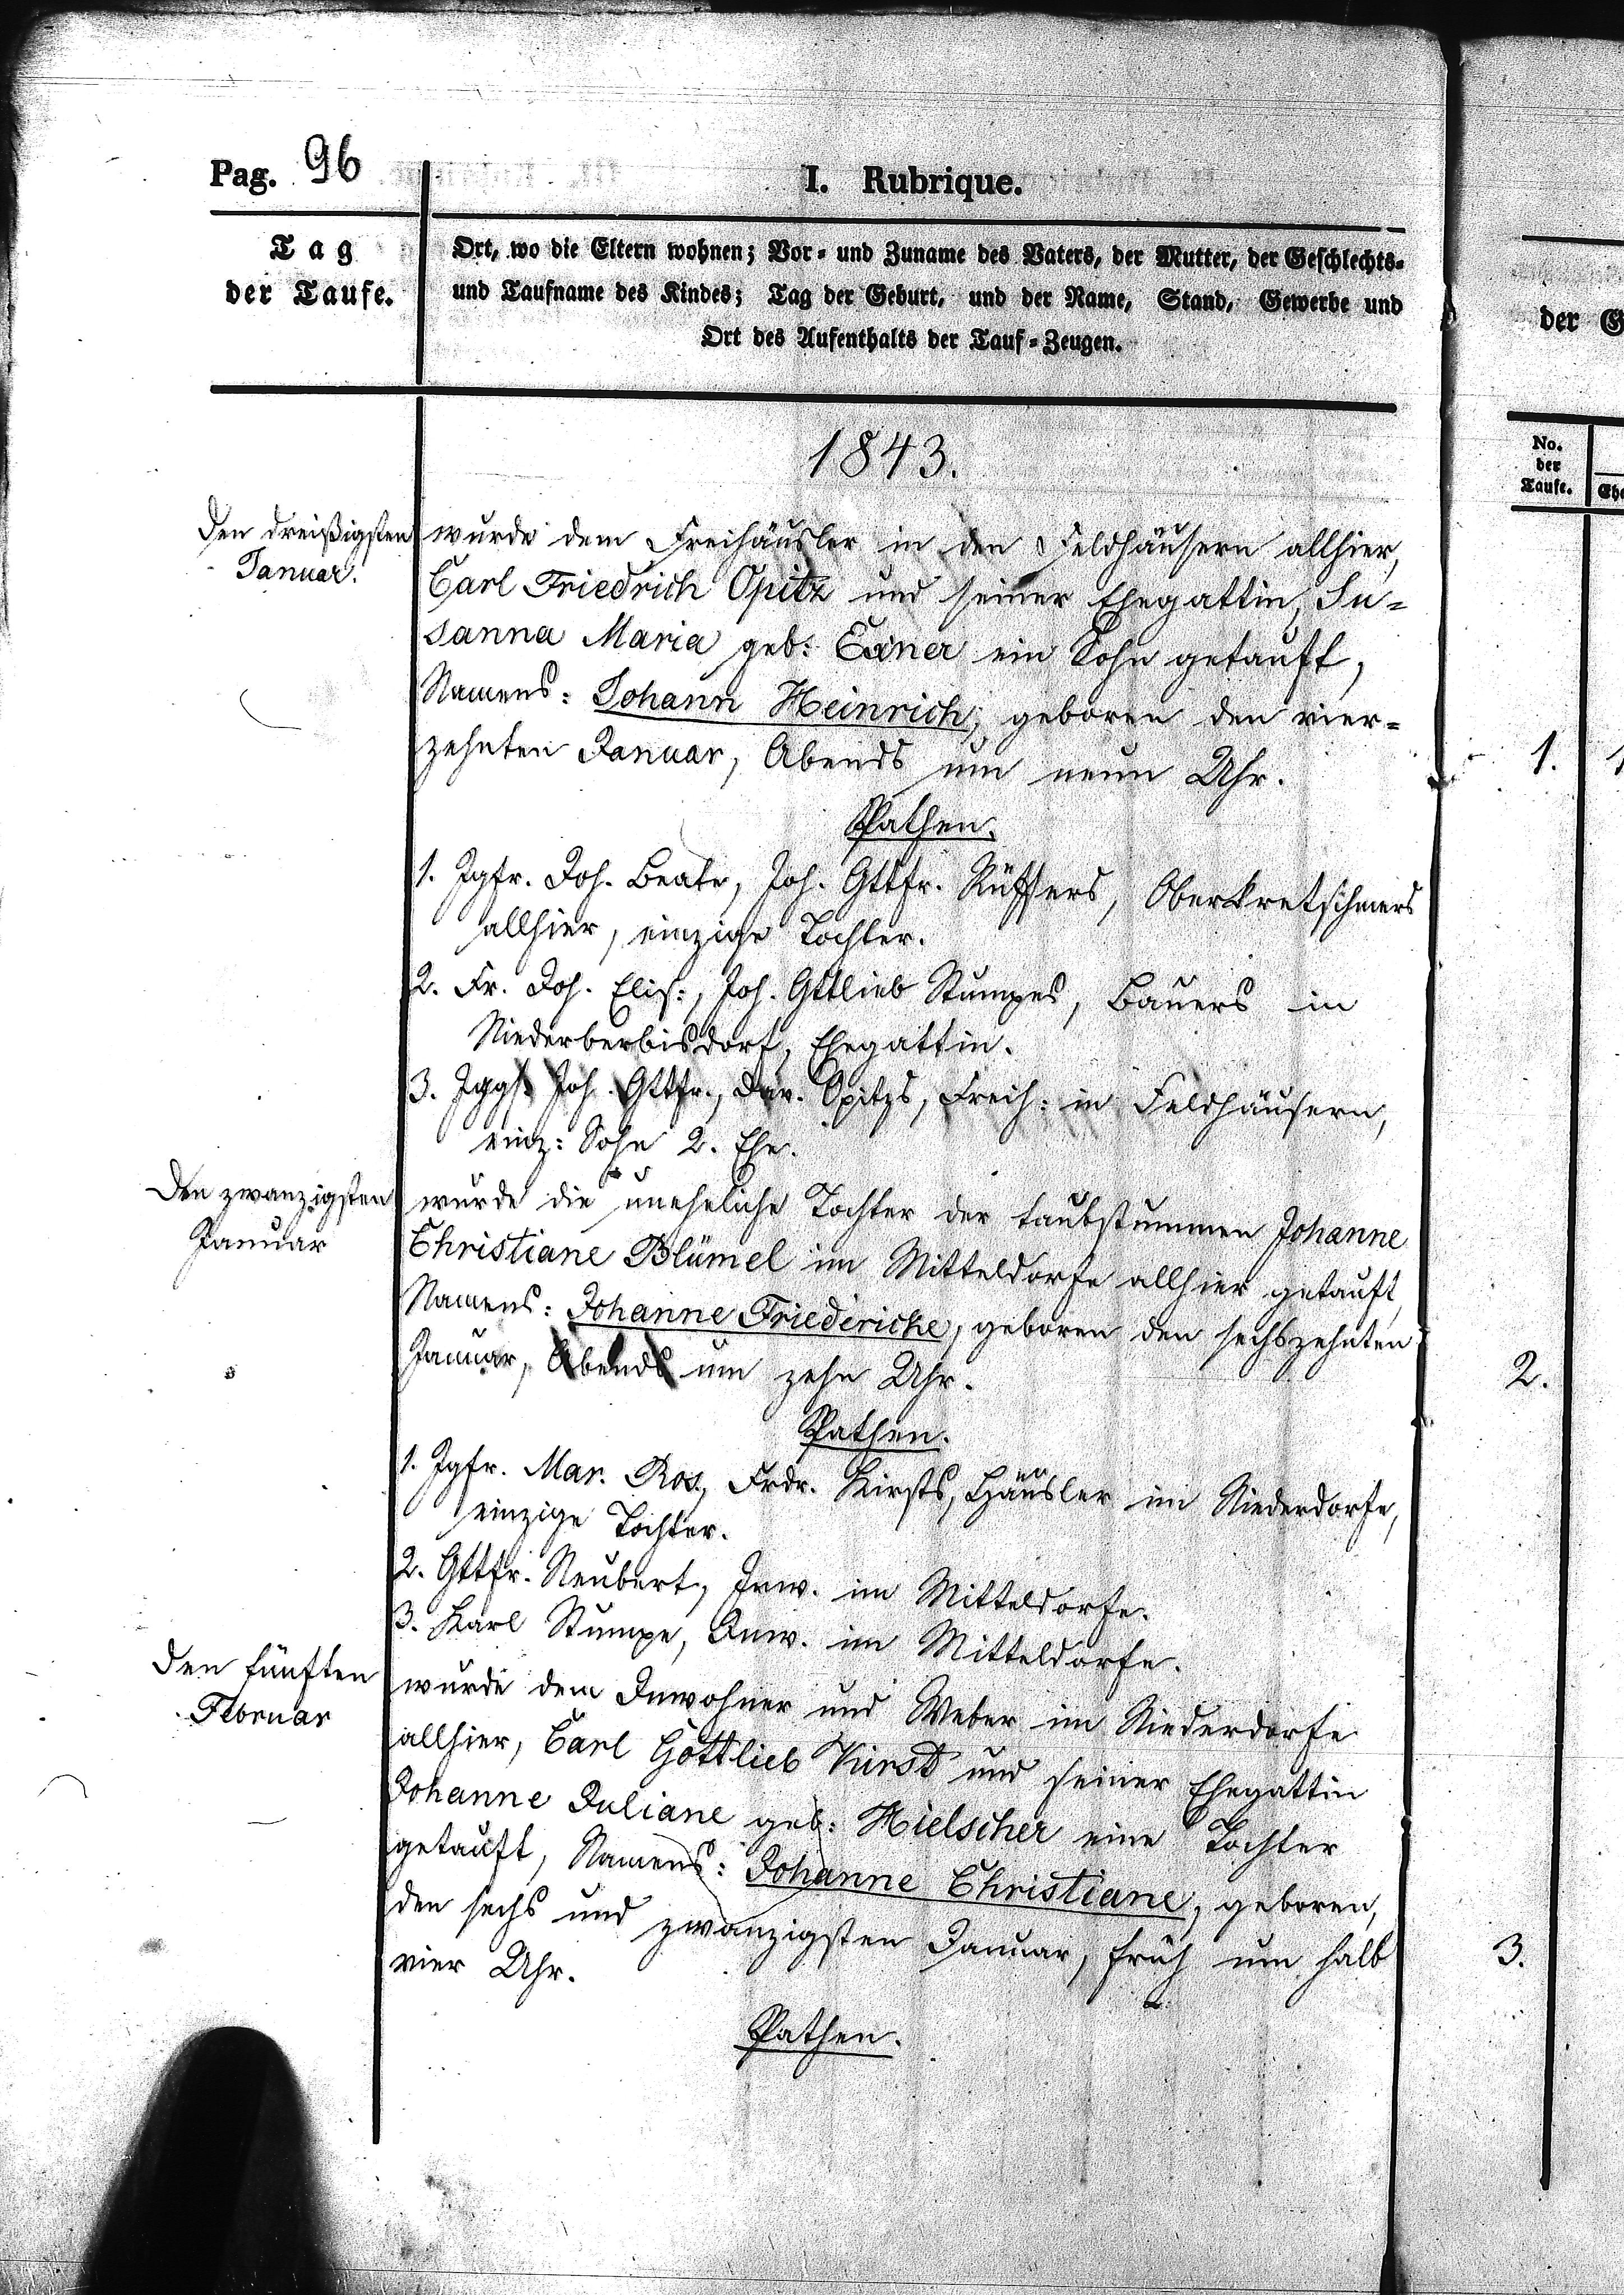 Pag. 96
I. Rubrique.
Tag
der Taufe.
Ort, wo die Eltern wohnen; Vor- und Zuname des Vaters, der Mutter, der Geschlechts-
und Taufname des Kindes; Tag der Geburt, und der Name, Stand, Gewerbe und
Ort des Aufenthalts der Tauf-Zeugen.
1843.
Den dreißigsten
Januar.
wurde dem Freihäusler in den Feldhäusern allhier,
Carl Friedrich Opitz und seiner Ehegattin, Su-
sanna Maria geb: Exner ein Sohn getauft,
Namens: Johann Heinrich, geboren den vier-
zehnten Januar, Abends um neun Uhr.
Pathen.
1. Jgfr. Joh. Beate, Joh. Gttfr. Rüffers, Oberkretschmers
allhier, einzige Tochter.
2. Fr. Joh. Elis:, Joh. Gttlieb Stumpes, Bauers in
Niederberbisdorf, Ehegattin.
3. Jggs. Joh. Gttfr., Dav. Opitzs, Freih: in Feldhäusern,
einz: Sohn 2. Ehe.
Den zwanzigsten
Januar
wurde die uneheliche Tochter der taubstummen Johanne
Christiane Blümel im Mitteldorfe allhier getauft,
Namens: Johanne Friedericke, geboren den sechszehnten
Januar, Abends um zehn Uhr.
Pathen.
1. Jgfr. Mar. Ros., Frdr. Kirsts, Häusler im Niederdorfe,
einzige Tochter.
2. Gttfr. Neubert, Inw. im Mitteldorfe.
3. Karl Stumpe, Inw. im Mitteldorfe.
Den fünften
Februar
wurde dem Inwohner und Weber im Niederdorfe
allhier, Carl Gottlieb und seiner Ehegattin
Johanne Juliane geb: Hielscher eine Tochter
getauft, Namens: Johanne Christiane, geboren,
den sechs und zwanzigsten Januar, früh um halb
vier Uhr.
Pathen.
der G
No.
der
Taufe.
Ehe
1.
1
2.
3.